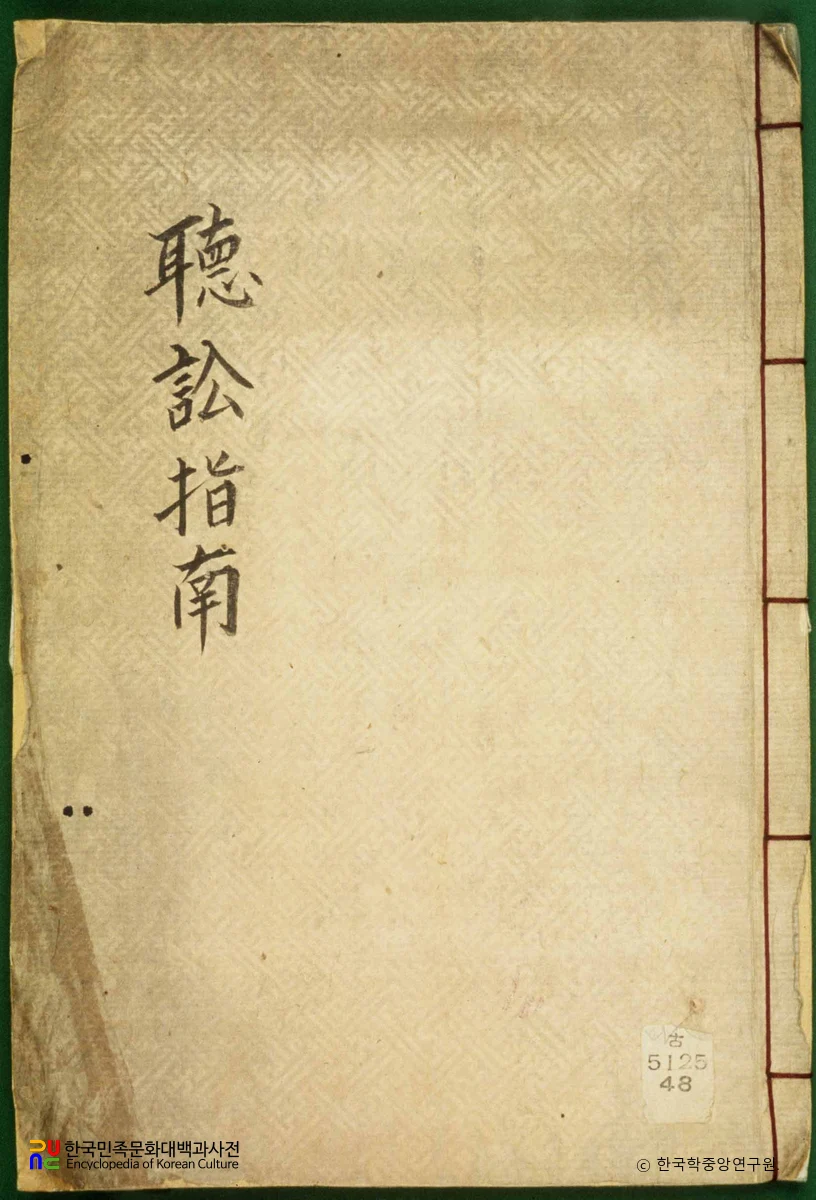 聽訟指南
古
5125
48
한국민족문화대백과사전
Encyclopedia of Korean Culture
© 한국학중앙연구원